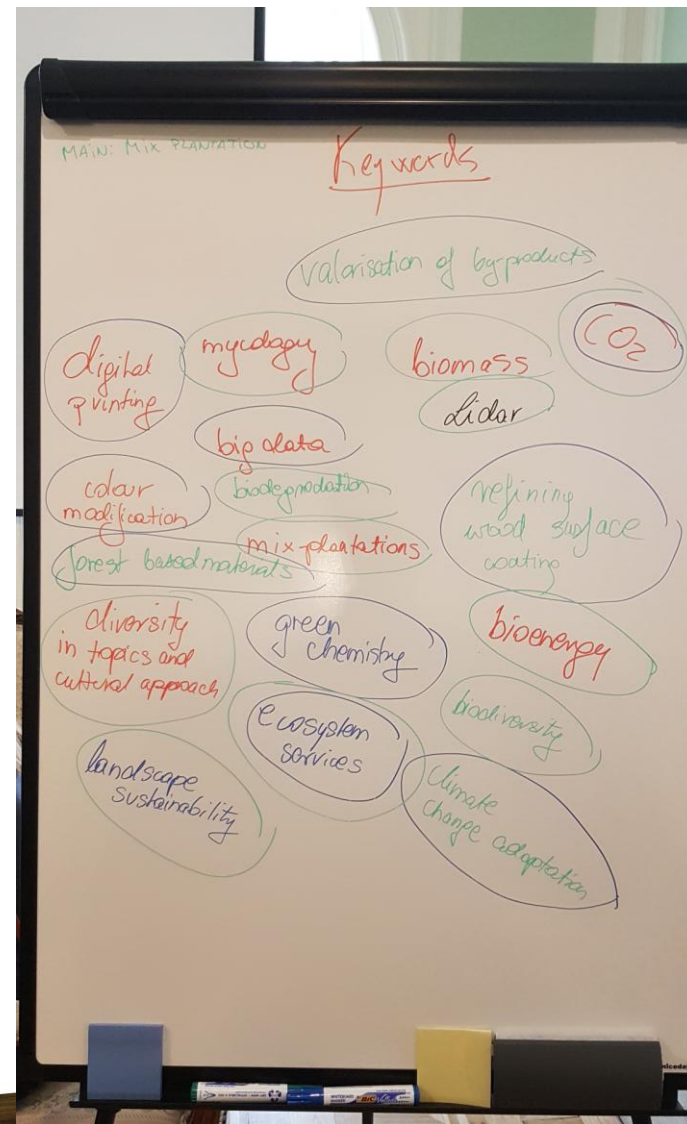 MAIN: MIX PLANTATION
Keywords
valorisation of by-products
CO2
digital
printing
mycology
biomass
Lidar
big data
colour
modification
biodegradation
refining
wood surface
coating
mix-plantations
forest based materials
diversity
in topics and
cultural approach
green
chemistry
bioenergy
ecosystem
services
biodiversity
landscape
sustainability
climate
change adaptation
BIC